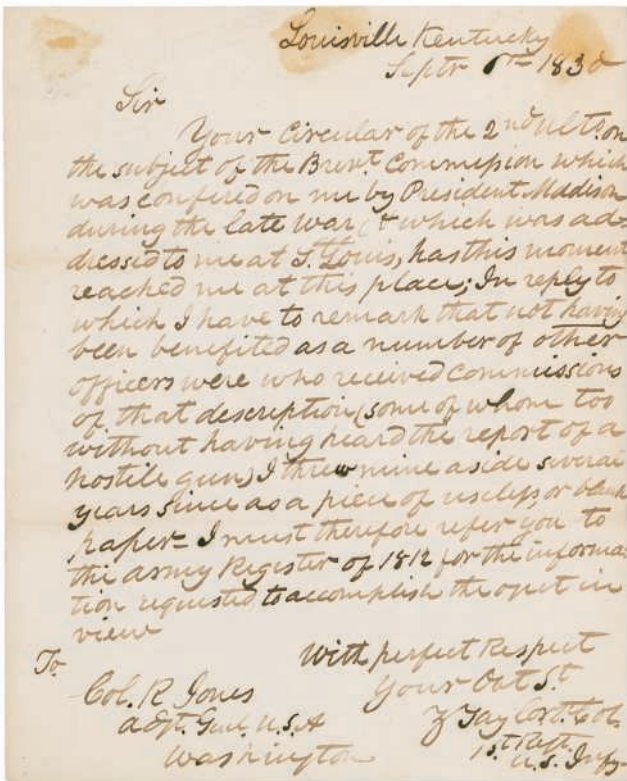 Louisville Kentucky
Septr 6th 1830
Sir
Your Circular of the 2nd ulto. on
the subject of the Brevt. Commission which
was confered on me by President Madison
during the late War, & which was ad-
dressed to me at St. Louis, has this moment
reached me at this place; In reply to
which I have to remark that not having
been benefited as a number of other
officers were who received commissions
of that description, (some of whom too
without having heard the report of a
hostile gun) I threw mine aside several
years since as a piece of useless, or blank
paper - I must therefore refer you to
the army Register of 1812 for the informa-
tion requested to accomplish the object in
view
With perfect Respect
Your Obt St.
Z Taylor Lt. Col.
1st Regt.
U.S. Infy-
To
Col. R Jones
adjt. Genl. U.S.A
Washington